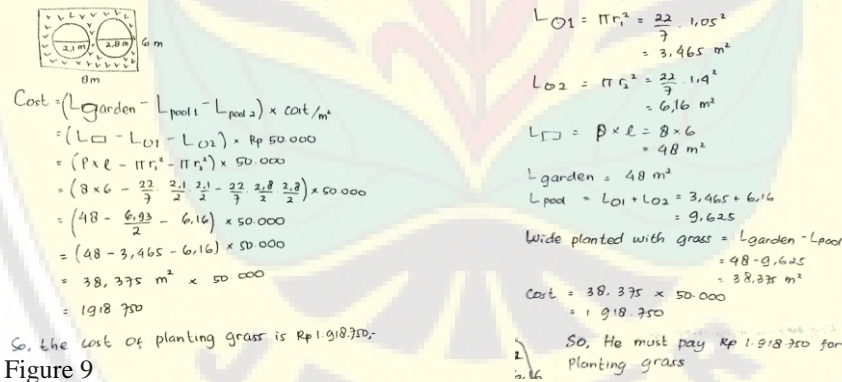 2,1 m 2,8 m 6 m
8m
Cost = (Lgarden - Lpool 1 - Lpool 2) × cost/m²
= (L□ - L○1 - L○2) × Rp 50.000
= (p×l - πr₁² - πr₂²) × 50.000
= (8×6 - 22/7 . 2,1/2 . 2,1/2 - 22/7 . 2,8/2 . 2,8/2) × 50.000
= (48 - 6,93/2 - 6,16) × 50.000
= (48 - 3,465 - 6,16) × 50.000
= 38,375 m² × 50.000
= 1918.750
So, the cost of planting grass is Rp 1.918.750,-
Figure 9
L○1 = πr₁² = 22/7 . 1,05²
= 3,465 m²
L○2 = πr₂² = 22/7 . 1,4²
= 6,16 m²
L▭ = p × l = 8 × 6
= 48 m²
L garden = 48 m²
L pool = L○1 + L○2 = 3,465 + 6,16
= 9,625
Wide planted with grass = Lgarden - Lpool
= 48 - 9,625
= 38,375 m²
Cost = 38.375 × 50.000
= 1 918.750
So, He must pay Rp 1.918.750 for
Planting grass
2